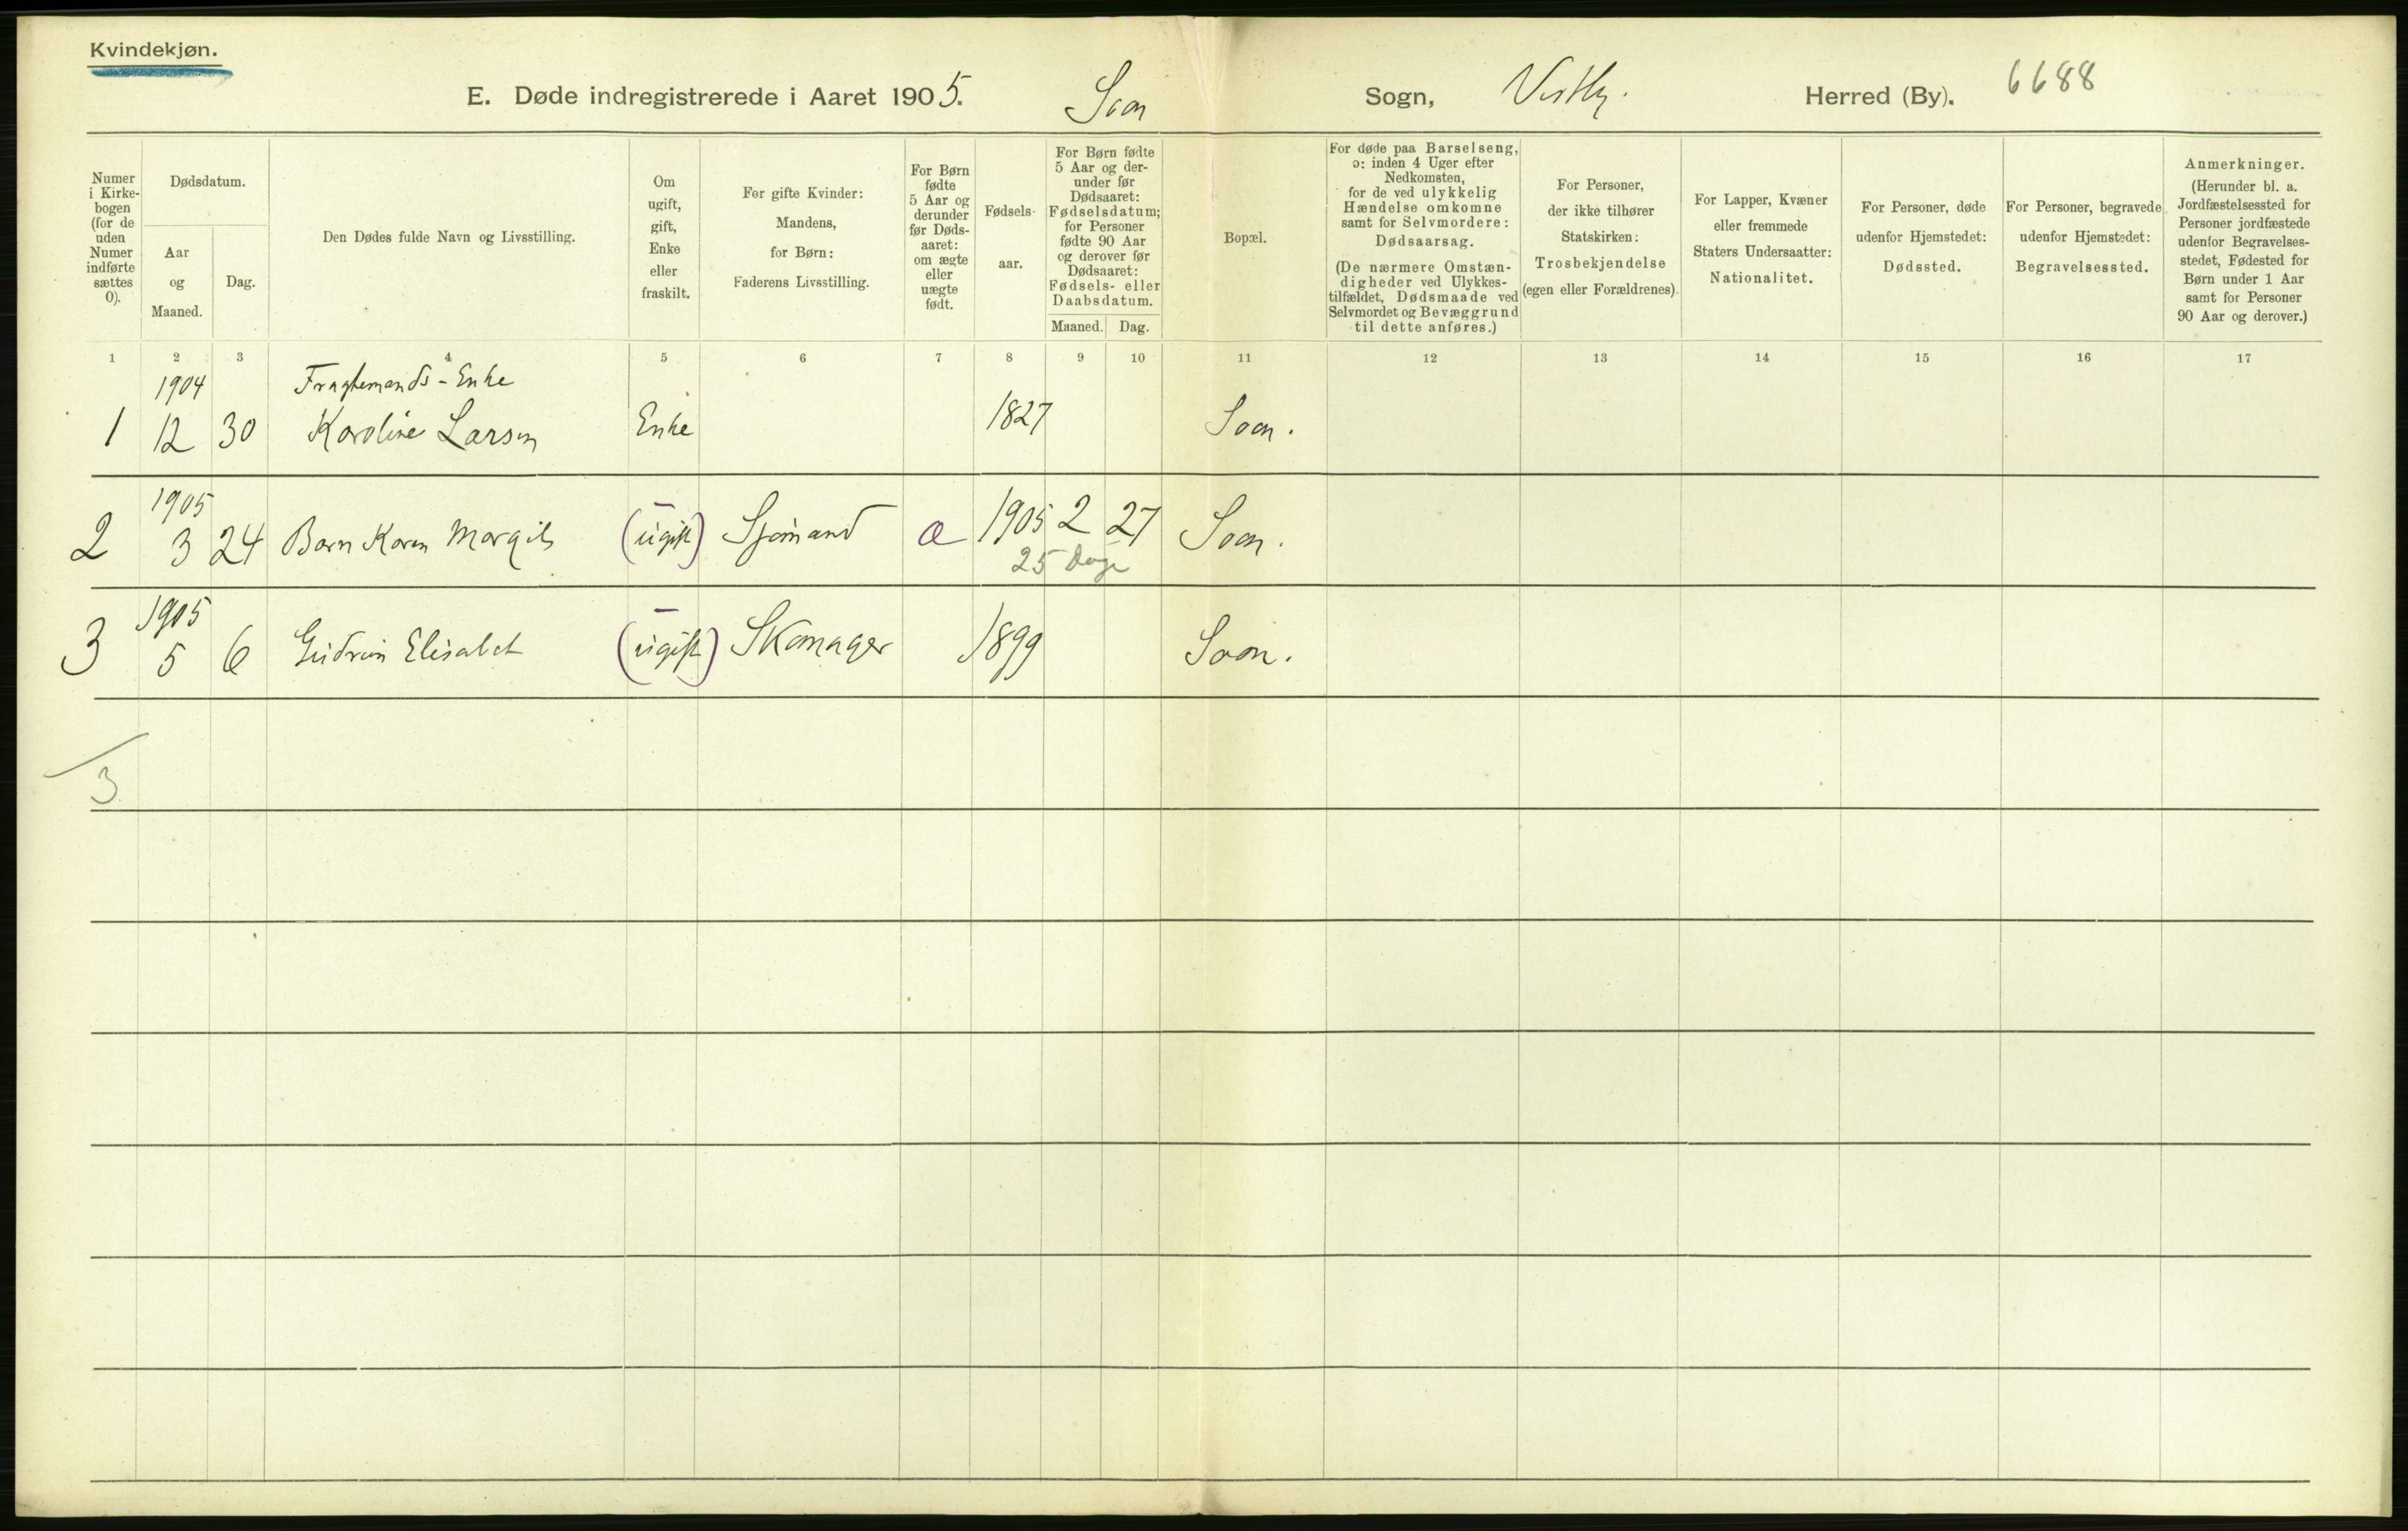 Kvindekjøn.
E. Døde indregistrerede i Aaret 1905. Soon Sogn, Vestby. Herred (By). 6688
Numer
i Kirke-
bogen
(for de
uden
Numer
indførte
sættes
0).
Dødsdatum.
Aar
og
Maaned.
Dag.
Den Dødes fulde Navn og Livsstilling.
Om
ugift,
gift,
Enke
eller
fraskilt.
For gifte Kvinder:
Mandens,
for Børn:
Faderens Livsstilling.
For Børn
fødte
5 Aar og
derunder
før Døds-
aaret:
om ægte
eller
uægte
født.
Fødsels-
aar.
For Børn fødte
5 Aar og der-
under før
Dødsaaret:
Fødselsdatum;
for Personer
fødte 90 Aar
og derover før
Dødsaaret:
Fødsels- eller
Daabsdatum.
Maaned. Dag.
Bopæl.
For døde paa Barselseng,
ɔ: inden 4 Uger efter
Nedkomsten,
for de ved ulykkelig
Hændelse omkomne
samt for Selvmordere:
Dødsaarsag.
(De nærmere Omstæn-
digheder ved Ulykkes-
tilfældet, Dødsmaade ved
Selvmordet og Bevæggrund
til dette anføres.)
For Personer,
der ikke tilhører
Statskirken:
Trosbekjendelse
(egen eller Forældrenes).
For Lapper, Kvæner
eller fremmede
Staters Undersaatter:
Nationalitet.
For Personer, døde
udenfor Hjemstedet:
Dødssted.
For Personer, begravede
udenfor Hjemstedet:
Begravelsessted.
Anmerkninger.
(Herunder bl. a.
Jordfæstelsessted for
Personer jordfæstede
udenfor Begravelses-
stedet, Fødested for
Børn under 1 Aar
samt for Personer
90 Aar og derover.)
1 2 3 4 5 6 7 8 9 10 11 12 13 14 15 16 17
1904 Fragtemands-Enke
1 12 30 Karoline Larsen Enke 1827 Soon.
1905
2 3 24 Barn Karen Margit (ugift) Sjømand æ 1905 2 27 Soon.
25 Dage
1905
3 5 6 Gudrun Elisabet (ugift) Skomager 1899 Soon.
3